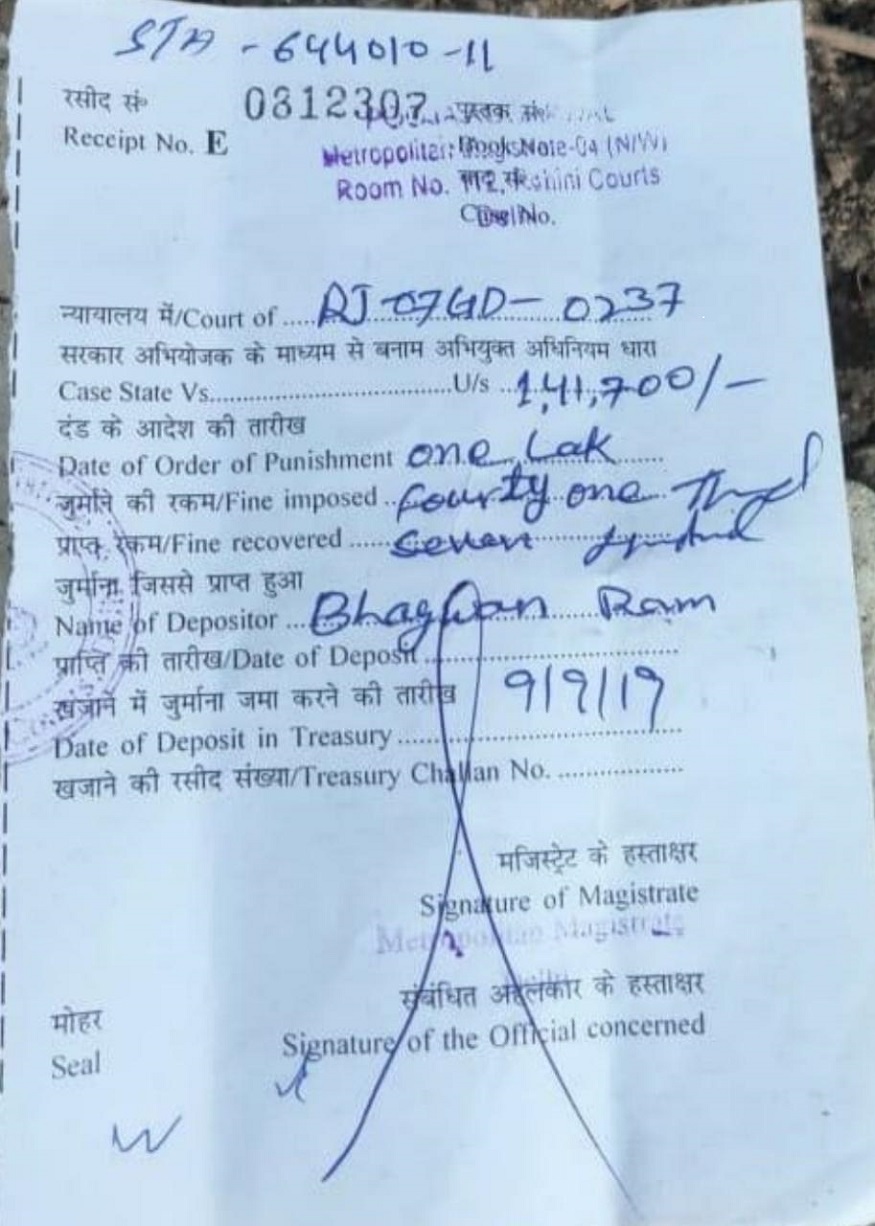 STA - 644010-11
रसीद सं० 0312307 पुस्तक सं०
Receipt No. E
Metropolitan (N/W)
Room No. 112, Rohini Courts
No.
न्यायालय में/Court of ..... RJ-07GD-0237
सरकार अभियोजक के माध्यम से बनाम अभियुक्त अधिनियम धारा
Case State Vs. ..... U/s ... 1,41,700/-
दंड के आदेश की तारीख
Date of Order of Punishment one Lak
जुर्माने की रकम/Fine imposed .. fourty one
प्राप्त रकम/Fine recovered ...... seven
जुर्माना जिससे प्राप्त हुआ
Name of Depositor ... Bhagwan Ram
प्राप्ति की तारीख/Date of Deposit
खजाने में जुर्माना जमा करने की तारीख 9/9/19
Date of Deposit in Treasury
खजाने की रसीद संख्या/Treasury Challan No.
मजिस्ट्रेट के हस्ताक्षर
Signature of Magistrate
Metropolitan Magistrate
संबंधित अहलकार के हस्ताक्षर
मोहर
Signature of the Official concerned
Seal